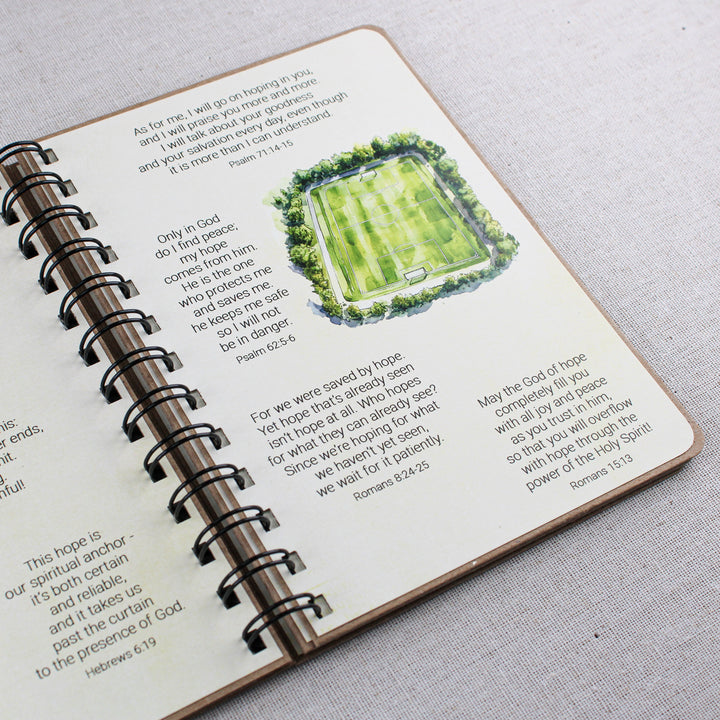 As for me, I will go on hoping in you,
and I will praise you more and more.
I will talk about your goodness
and your salvation every day, even though
it is more than I can understand.
Psalm 71:14-15
Only in God
do I find peace;
my hope
comes from him.
He is the one
who protects me
and saves me.
he keeps me safe
so I will not
be in danger.
Psalm 62:5-6
For we were saved by hope.
Yet hope that's already seen
isn't hope at all. Who hopes
for what they can already see?
Since we're hoping for what
we haven't yet seen,
we wait for it patiently.
Romans 8:24-25
May the God of hope
completely fill you
with all joy and peace
as you trust in him,
so that you will overflow
with hope through the
power of the Holy Spirit!
Romans 15:13
ends,
This hope is
our spiritual anchor -
it's both certain
and reliable,
and it takes us
past the curtain
to the presence of God.
Hebrews 6:19